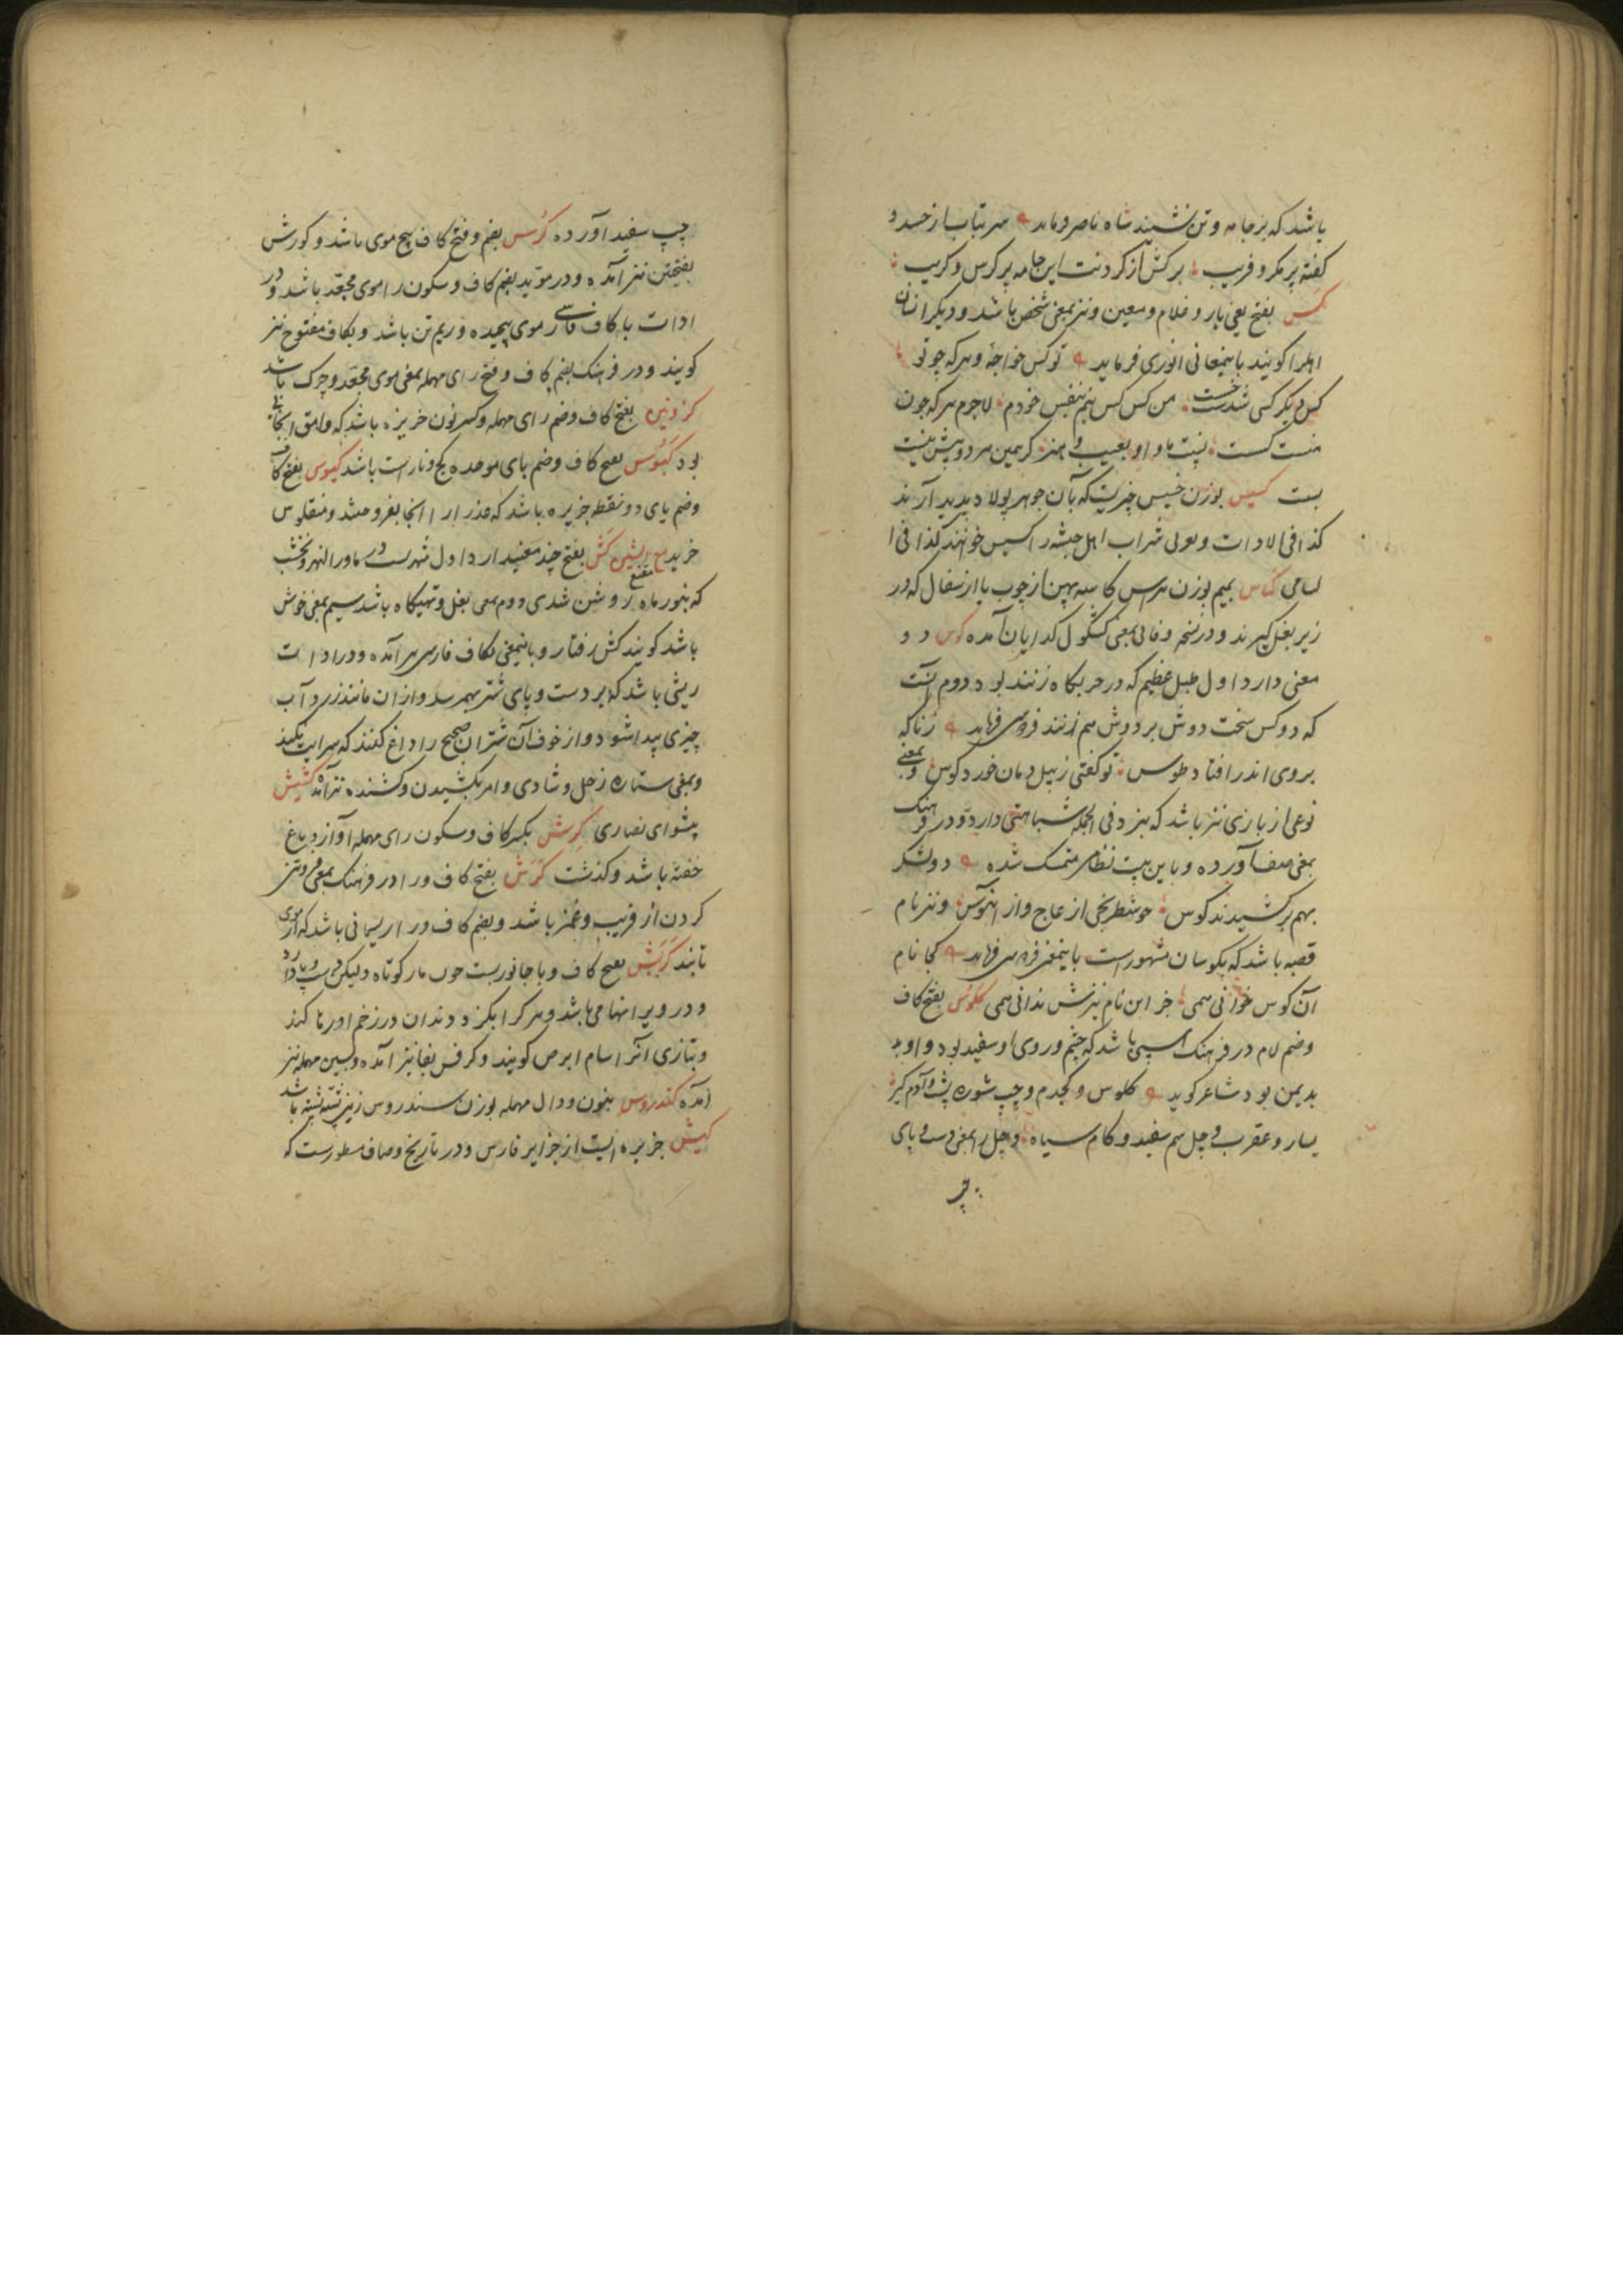 باشد که بر جامه و تن نشیند شاه ناصر فرماید سر بتاب از حسد و
کفته پر مکر و فریب برکش از کردنت این جامه پر کرس و کریب
کس بفتح یعنی یار و غلام و معین و نیز بمعنی شخص باشد و دیکر انسان
اهل را کویند باینمعانی انوری فرماید تو کس خواجهٔ و هر که چو تو
کس دیکر کسی شدست خست من کس کس نیم بنفس خودم لاجرم هر که چون
منست کست نیت ما و او بعیب و هنر کر همین سر دو پیش نیت
بست کسیس بوزن خسیس چیزیست که بآن جوهر پولاد پدید آرند
کذا فی الادات و بعربی شراب اهل حبشه را کسیس خوانند کذا فی ا
لسامی کماس بمیم بوزن هراس کاسه پهن از چوب یا از سفال که در
زیر بغل کیرند و در نسخه وفائی بمعنی کشکول کدایان آمده کوس دو
معنی دارد اول طبل عظیم که در حربکاه زنند بود دوم آنست
که دو کس سخت دوش بر دوش هم زنند فردوسی فرماید زناکه
بروی اندر افتاد طوس تو کفتی ز پیل دمان خورد کوس و بمعنی
نوعی از بازی نیز باشد که بنرد فی الجمله شباهتی دارد و در فرهنک
بمعنی صف آورده و باین بیت نظامی متمسک شده دو لشکر
بهم برکشیدند کوس چو شطرنجی از عاج و از آبنوس و نیز نام
قصبه باشد که بکوسان مشهور است باینمعنی فردوسی فرماید کجا نام
آن کوس خوانی همی جز این نام نیزش ندانی همی کلوس بفتح کاف
و ضم لام در فرهنک اسپی باشد که چشم و روی او سفید بود و او بد
بدیمن بود شاعر کوید کلوس و کجدم و چپ شوره پشت و آدم کیر
یسار و عقرب و چل سم سفید و کام سیاه و چل را بمعنی دست و پای
چپ
چپ سفید آورده کرس بضم و فتح کاف پیچ موی باشد و کورش
بفتحتین نیز آمده و در موید بضم کاف و سکون را موی مجعد باشد و در
ادات با کاف فارسی موی پیچیده و ریم تن باشد و بکاف مفتوح نیز
کویند و در فرهنک بضم کاف و فتح رای مهمله بمعنی موی مجعد و چرک باشد
بفتح کاف و ضم رای مهمله و کسر نون جزیره باشد که وامق آنجا
بود کبوس بفتح کاف و ضم بای موحده کج و ناراست باشد کیوس بفتح کاف
و ضم یای دو نقطه جزیره باشد که عذرا را آنجا بفروختند و منقلوس
خرید مع الشین کش بفتح چند معنی دارد اول شهریست در ماوراءالنهر و نخشب
که بنور ماه مقنع روشن شدی دوم بمعنی بغل و تهیکاه باشد سیم بمعنی خوش
باشد کویند کش رفتار و باینمعنی بکاف فارسی هم آمده و در ادات
ریشی باشد که بر دست و پای شتر بهم رسد و از آن مانند زرد آب
چیزی پیدا شود و از خوف آن شتران صحیح را داغ کنند که سرایت نکند
و بمعنی ستاره زحل و شادی و امر بکشیدن و کشنده نیز آمده کشیش
پیشوای نصاری کرش بکسر کاف و سکون رای مهمله آواز دماغ
خفته باشد و کذشت کرش بفتح کاف و را در فرهنک بمعنی
کردن از فریب و غمز باشد و بضم کاف و را ریسمانی باشد که از موی
تابند کربش بفتح کاف و با جانوریست چون مار کوتاه ولیکن دست و پا دارد
و در ویرانها می باشد و هر کرا بکزد دندان در زخم او رها کند
و بتازی آنرا سام ابرص کویند و کرفس بفا نیز آمده و بسین مهمله نیز
آمده کندروس بنون و دال مهمله بوزن سندروس زمین پشته پشته باشد
کیش جزیره ایست از جزایر فارس و در تاریخ وصاف مسطورست که